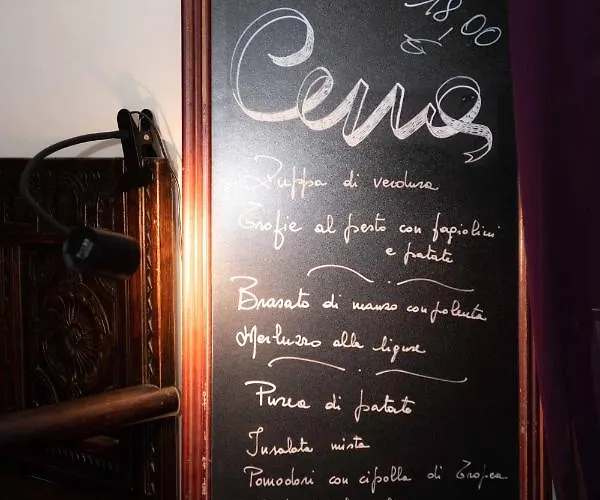 18,00
€
Cena
Zuppa di verdura
Trofie al pesto con fagiolini
e patate
Brasato di manzo con polenta
Merluzzo alla ligure
Purea di patate
Insalata mista
Pomodori con cipolla di Tropea